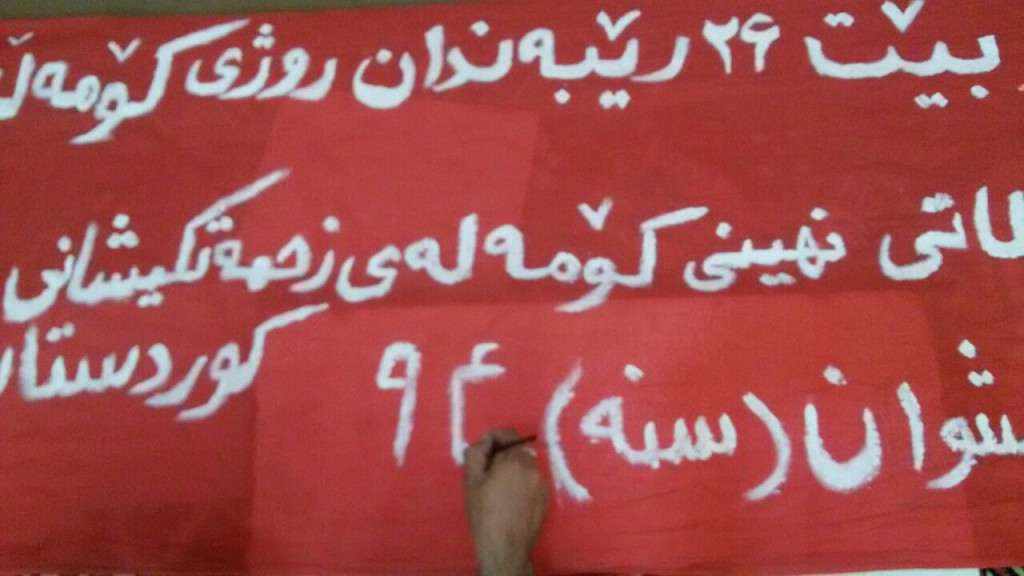 بێت ۲۶ رێبەندان روژی کۆمەڵ
لاتی نهینی کۆمەلەی زحمەتکیشانی
کوردستان
شوان (سنە) ۹۴